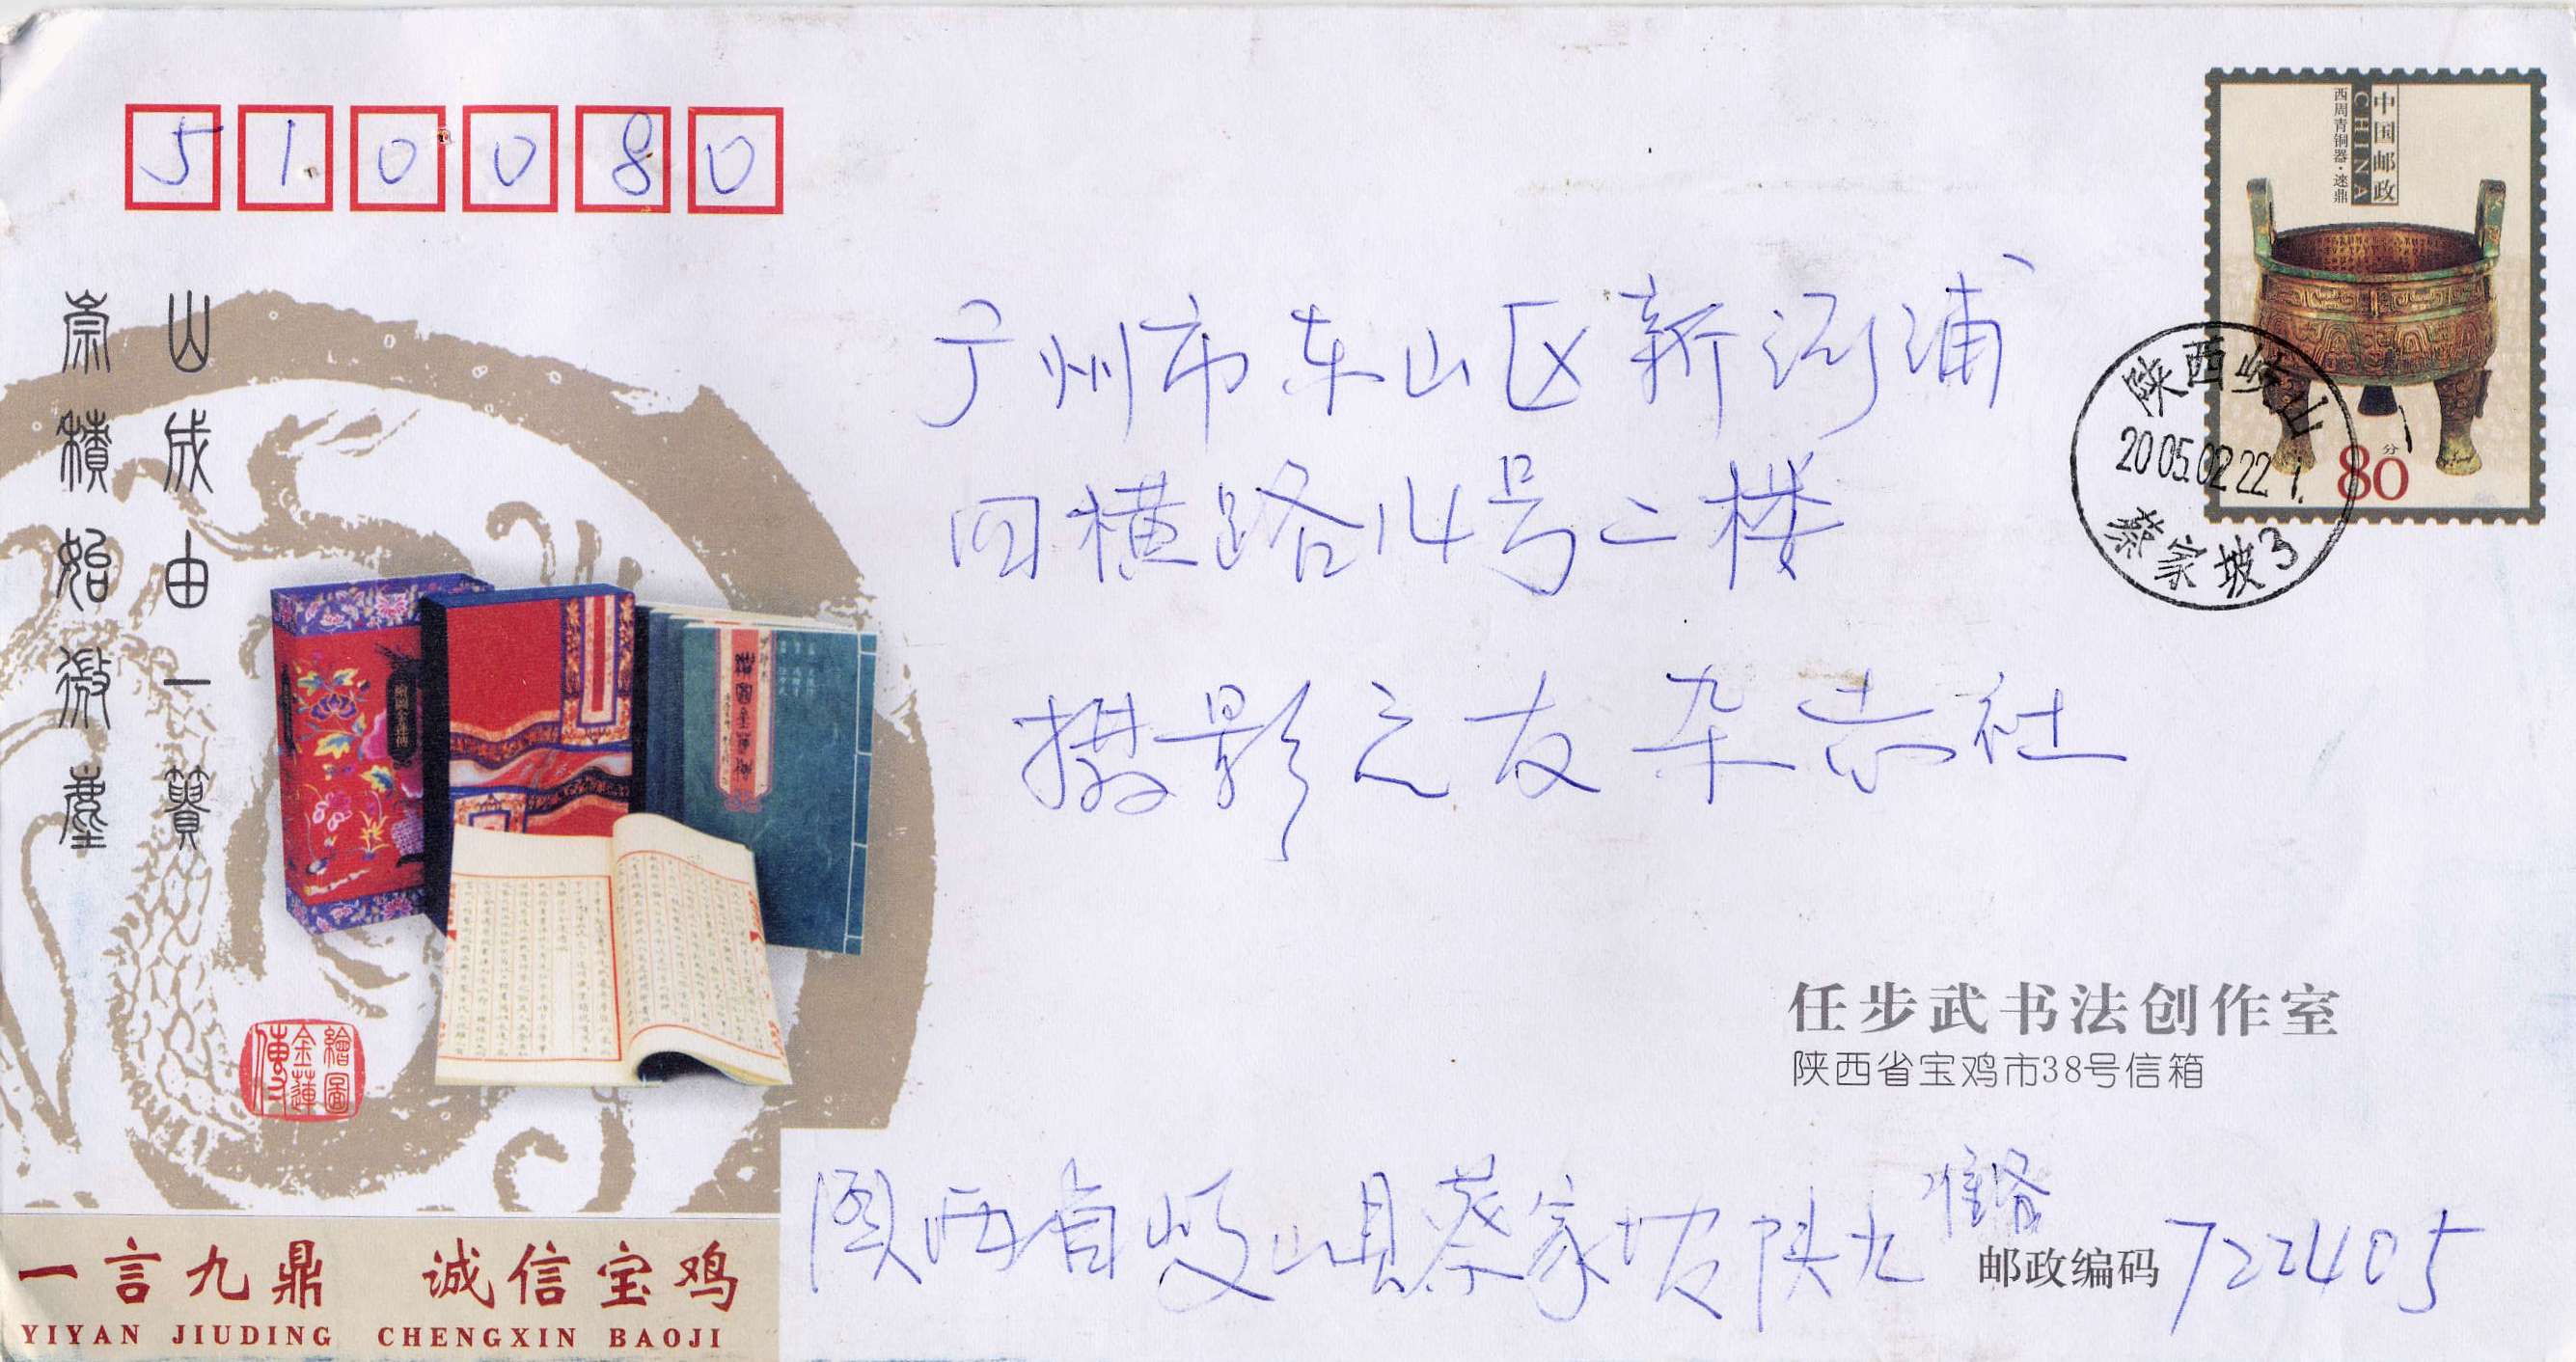 510080
中国邮政
CHINA
西周青铜器·逨鼎
80分
陕西岐山
2005.02.22.
蔡家坡3
广州市东山区新河浦
四横路14号二楼
摄影之友杂志社
山成由一簣
崇積始微塵
繪圖金蓮傳
任步武书法创作室
陕西省宝鸡市38号信箱
陕西省岐山县蔡家坡陕九
邮政编码 722405
一言九鼎 诚信宝鸡
YIYAN JIUDING CHENGXIN BAOJI